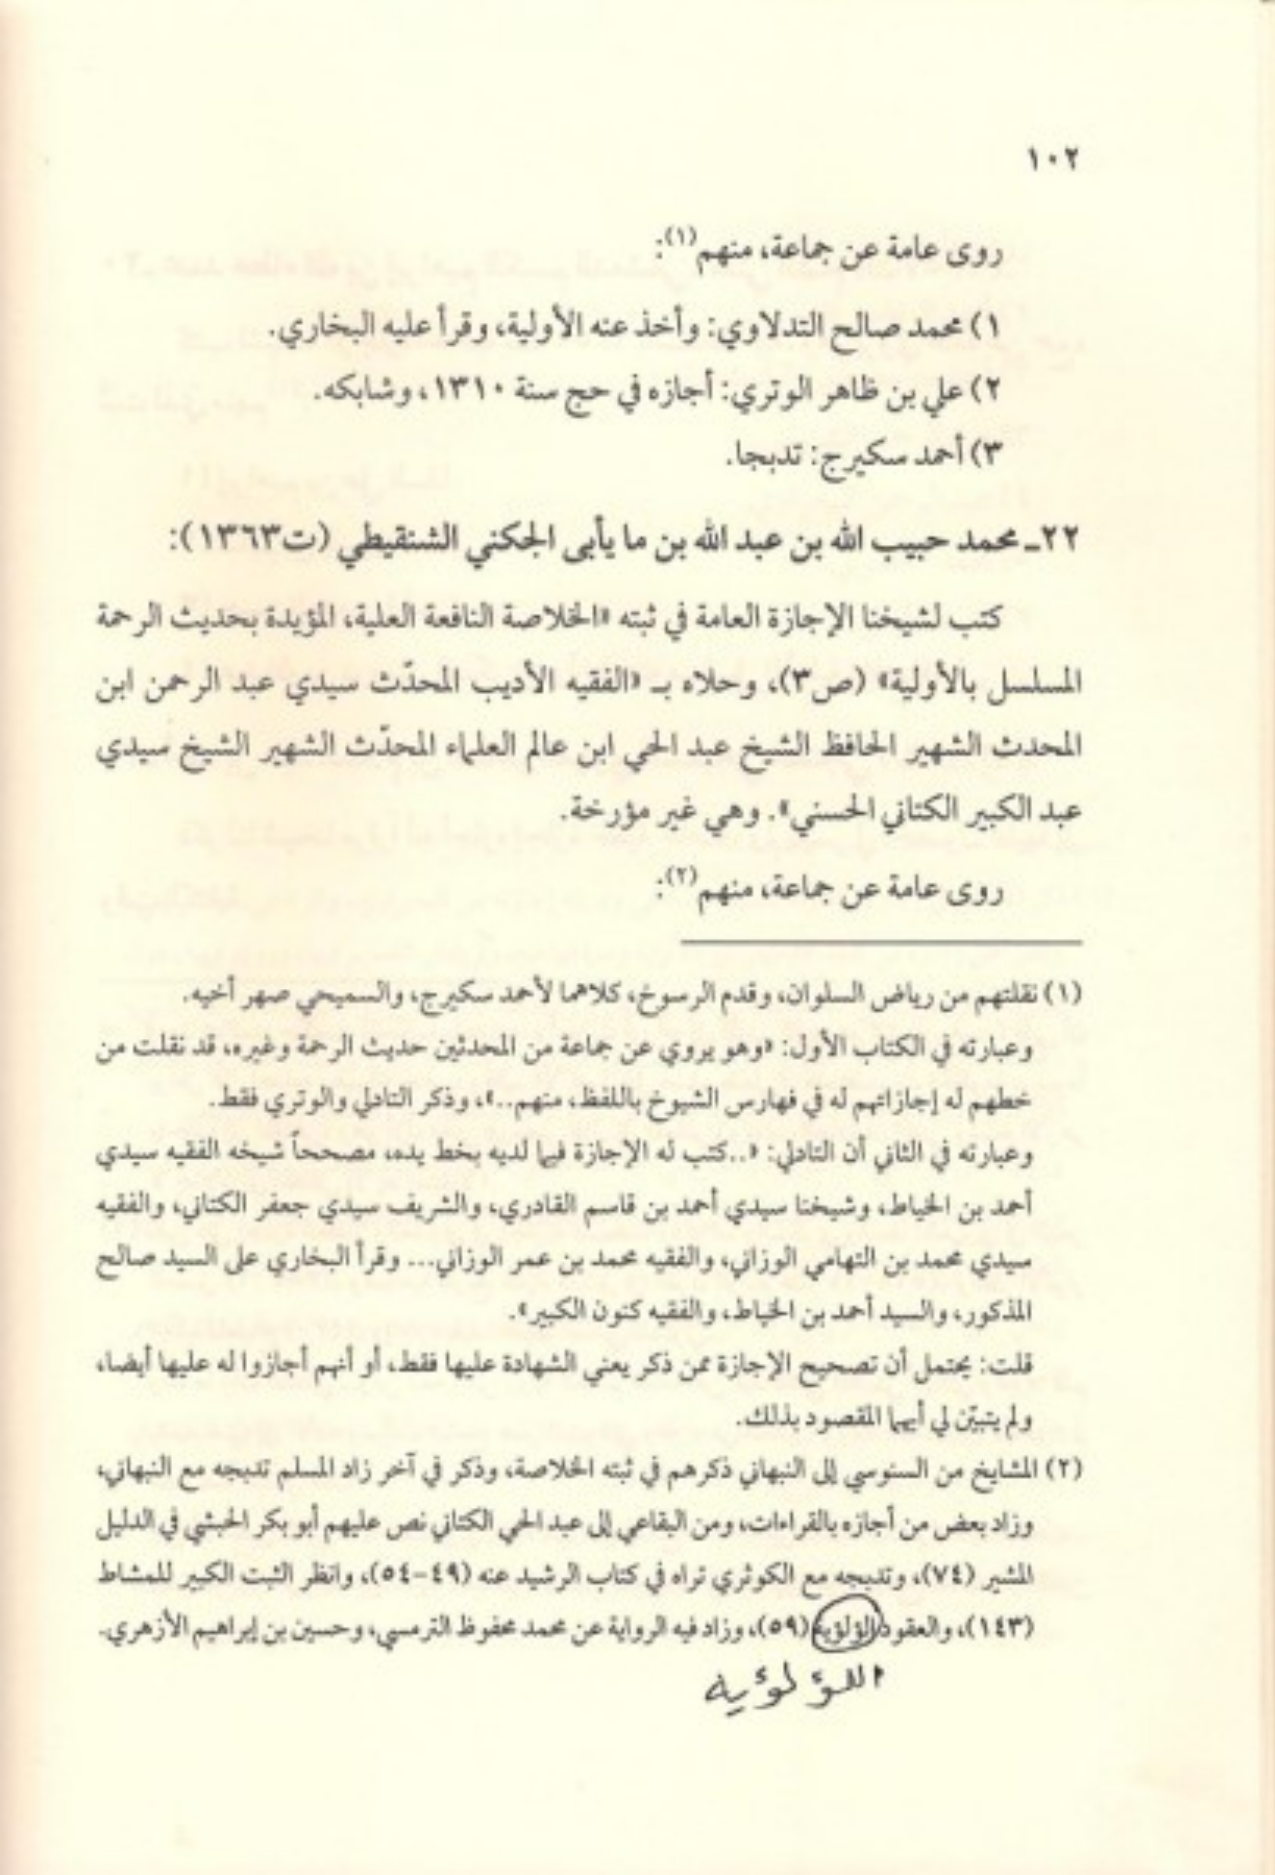 ١٠٢
روى عامة عن جماعة، منهم(١):
١) محمد صالح التدلاوي: وأخذ عنه الأولية، وقرأ عليه البخاري.
٢) علي بن ظاهر الوتري: أجازه في حج سنة ١٣١٠، وشابكه.
٣) أحمد سكيرج: تدبجا.
٢٢ـ محمد حبيب الله بن عبد الله بن ما يأبى الجكني الشنقيطي (ت١٣٦٣):
كتب لشيخنا الإجازة العامة في ثبته «الخلاصة النافعة العلية، المؤيدة بحديث الرحمة
المسلسل بالأولية» (ص٣)، وحلاه بـ «الفقيه الأديب المحدّث سيدي عبد الرحمن ابن
المحدث الشهير الحافظ الشيخ عبد الحي ابن عالم العلماء المحدّث الشهير الشيخ سيدي
عبد الكبير الكتاني الحسني». وهي غير مؤرخة.
روى عامة عن جماعة، منهم(٢):
(١) نقلتهم من رياض السلوان، وقدم الرسوخ، كلاهما لأحمد سكيرج، والسميحي صهر أخيه.
وعبارته في الكتاب الأول: «وهو يروي عن جماعة من المحدثين حديث الرحمة وغيره، قد نقلت من
خطهم له إجازاتهم له في فهارس الشيوخ باللفظ، منهم..»، وذكر التادلي والوتري فقط.
وعبارته في الثاني أن التادلي: «..كتب له الإجازة فيما لديه بخط يده، مصححاً شيخه الفقيه سيدي
أحمد بن الخياط، وشيخنا سيدي أحمد بن قاسم القادري، والشريف سيدي جعفر الكتاني، والفقيه
سيدي محمد بن التهامي الوزاني، والفقيه محمد بن عمر الوزاني... وقرأ البخاري على السيد صالح
المذكور، والسيد أحمد بن الخياط، والفقيه كنون الكبير».
قلت: يحتمل أن تصحيح الإجازة ممن ذكر يعني الشهادة عليها فقط، أو أنهم أجازوا له عليها أيضا،
ولم يتبيّن لي أيهما المقصود بذلك.
(٢) المشايخ من السنوسي إلى النبهاني ذكرهم في ثبته الخلاصة، وذكر في آخر زاد المسلم تدبجه مع النبهاني،
وزاد بعض من أجازه بالقراءات، ومن البقاعي إلى عبد الحي الكتاني نص عليهم أبو بكر الحبشي في الدليل
المشير (٧٤)، وتدبجه مع الكوثري تراه في كتاب الرشيد عنه (٤٩-٥٤)، وانظر الثبت الكبير للمشاط
(١٤٣)، والعقود الؤلؤية (٥٩)، وزاد فيه الرواية عن محمد محفوظ الترمسي، وحسين بن إبراهيم الأزهري.
اللؤلؤية